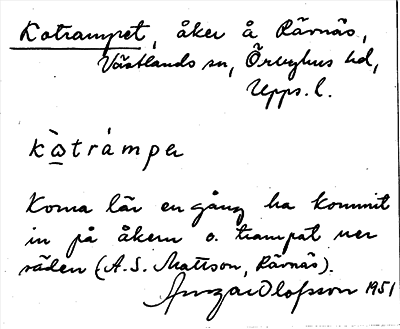 Kotrampet, åker å Rävnäs,
Västlands sn, Örbyhus hd,
Upps. l.
kò̱trámpɐ
Korna lär en gång ha kommit
in på åkern o. trampat ner
säden (A.S. Mattson, Rävnäs).
Olofsson 1951